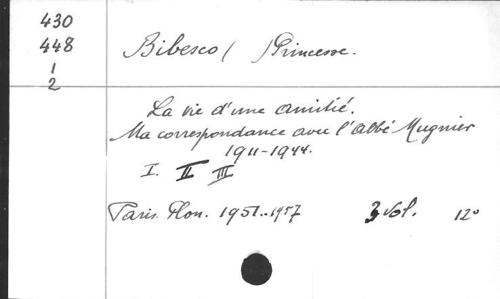 430
448
1
2
Bibesco / Princesse.
La vie d'une amitié.
Ma correspondance avec l'abbé Mugnier
1911-1944.
I. II III
Paris. Plon. 1951..1957 3 Vol. 12°